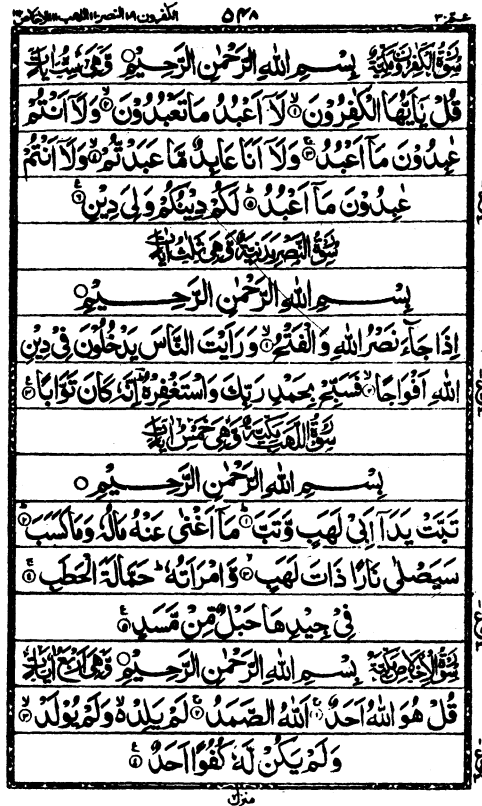 عم ٣٠ ٥٤٨ الكفرون ١٠٩ النصر ١١٠ اللهب ١١١ الاخلاص ١١٢
سُوْرَةُ الْكٰفِرُوْنَ مَكِّيَّةٌ بِسْمِ اللهِ الرَّحْمٰنِ الرَّحِيْمِ وَّهِيَ سِتُّ اٰيَاتٍ
قُلْ يٰٓاَيُّهَا الْكٰفِرُوْنَ ۙ﴿١﴾ لَآ اَعْبُدُ مَا تَعْبُدُوْنَ ۙ﴿٢﴾ وَلَآ اَنْتُمْ
عٰبِدُوْنَ مَآ اَعْبُدُ ۚ﴿٣﴾ وَلَآ اَنَا عَابِدٌ مَّا عَبَدْتُّمْ ۙ﴿٤﴾ وَلَآ اَنْتُمْ
عٰبِدُوْنَ مَآ اَعْبُدُ ؕ﴿٥﴾ لَكُمْ دِيْنُكُمْ وَلِيَ دِيْنِ ﴿٦﴾
سُوْرَةُ النَّصْرِ مَدَنِيَّةٌ وَّهِيَ ثَلٰثُ اٰيَاتٍ
بِسْمِ اللهِ الرَّحْمٰنِ الرَّحِيْمِ
اِذَا جَآءَ نَصْرُ اللهِ وَالْفَتْحُ ۙ﴿١﴾ وَرَاَيْتَ النَّاسَ يَدْخُلُوْنَ فِيْ دِيْنِ
اللهِ اَفْوَاجًا ۙ﴿٢﴾ فَسَبِّحْ بِحَمْدِ رَبِّكَ وَاسْتَغْفِرْهُ ؕ اِنَّهٗ كَانَ تَوَّابًا ﴿٣﴾
سُوْرَةُ اللَّهَبِ مَكِّيَّةٌ وَّهِيَ خَمْسُ اٰيَاتٍ
بِسْمِ اللهِ الرَّحْمٰنِ الرَّحِيْمِ
تَبَّتْ يَدَآ اَبِيْ لَهَبٍ وَّتَبَّ ؕ﴿١﴾ مَآ اَغْنٰى عَنْهُ مَالُهٗ وَمَا كَسَبَ ؕ﴿٢﴾
سَيَصْلٰى نَارًا ذَاتَ لَهَبٍ ۙ﴿٣﴾ وَّامْرَاَتُهٗ ؕ حَمَّالَةَ الْحَطَبِ ۚ﴿٤﴾
فِيْ جِيْدِهَا حَبْلٌ مِّنْ مَّسَدٍ ﴿٥﴾
سُوْرَةُ الْاِخْلَاصِ مَكِّيَّةٌ بِسْمِ اللهِ الرَّحْمٰنِ الرَّحِيْمِ وَّهِيَ اَرْبَعُ اٰيَاتٍ
قُلْ هُوَ اللهُ اَحَدٌ ۚ﴿١﴾ اَللهُ الصَّمَدُ ۚ﴿٢﴾ لَمْ يَلِدْ ۙ وَلَمْ يُوْلَدْ ۙ﴿٣﴾
وَلَمْ يَكُنْ لَّهٗ كُفُوًا اَحَدٌ ﴿٤﴾
منزل